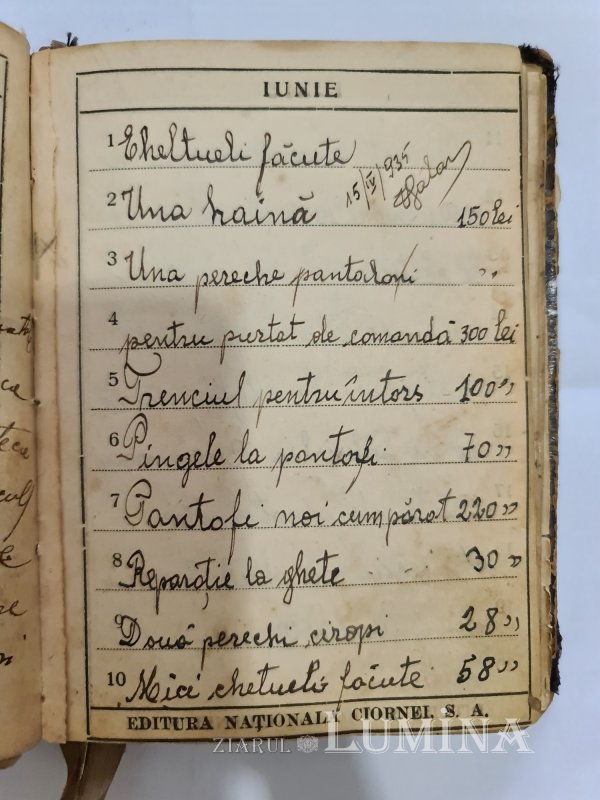 IUNIE
1 Cheltueli făcute
15/IV/935
2 Una haină 150 lei
3 Una pereche pantaloni "
4 pentru purtat de comandă 300 lei
5 Trenciul pentru întors 100 "
6 Pingele la pantofi 70 "
7 Pantofi noi cumpărat 220 "
8 Reparație la ghete 30 "
9 Două perechi ciropi 28 "
10 Mici chetueli făcute 58 "
EDITURA NAȚIONALĂ CIORNEI, S. A.
ZIARUL LUMINA